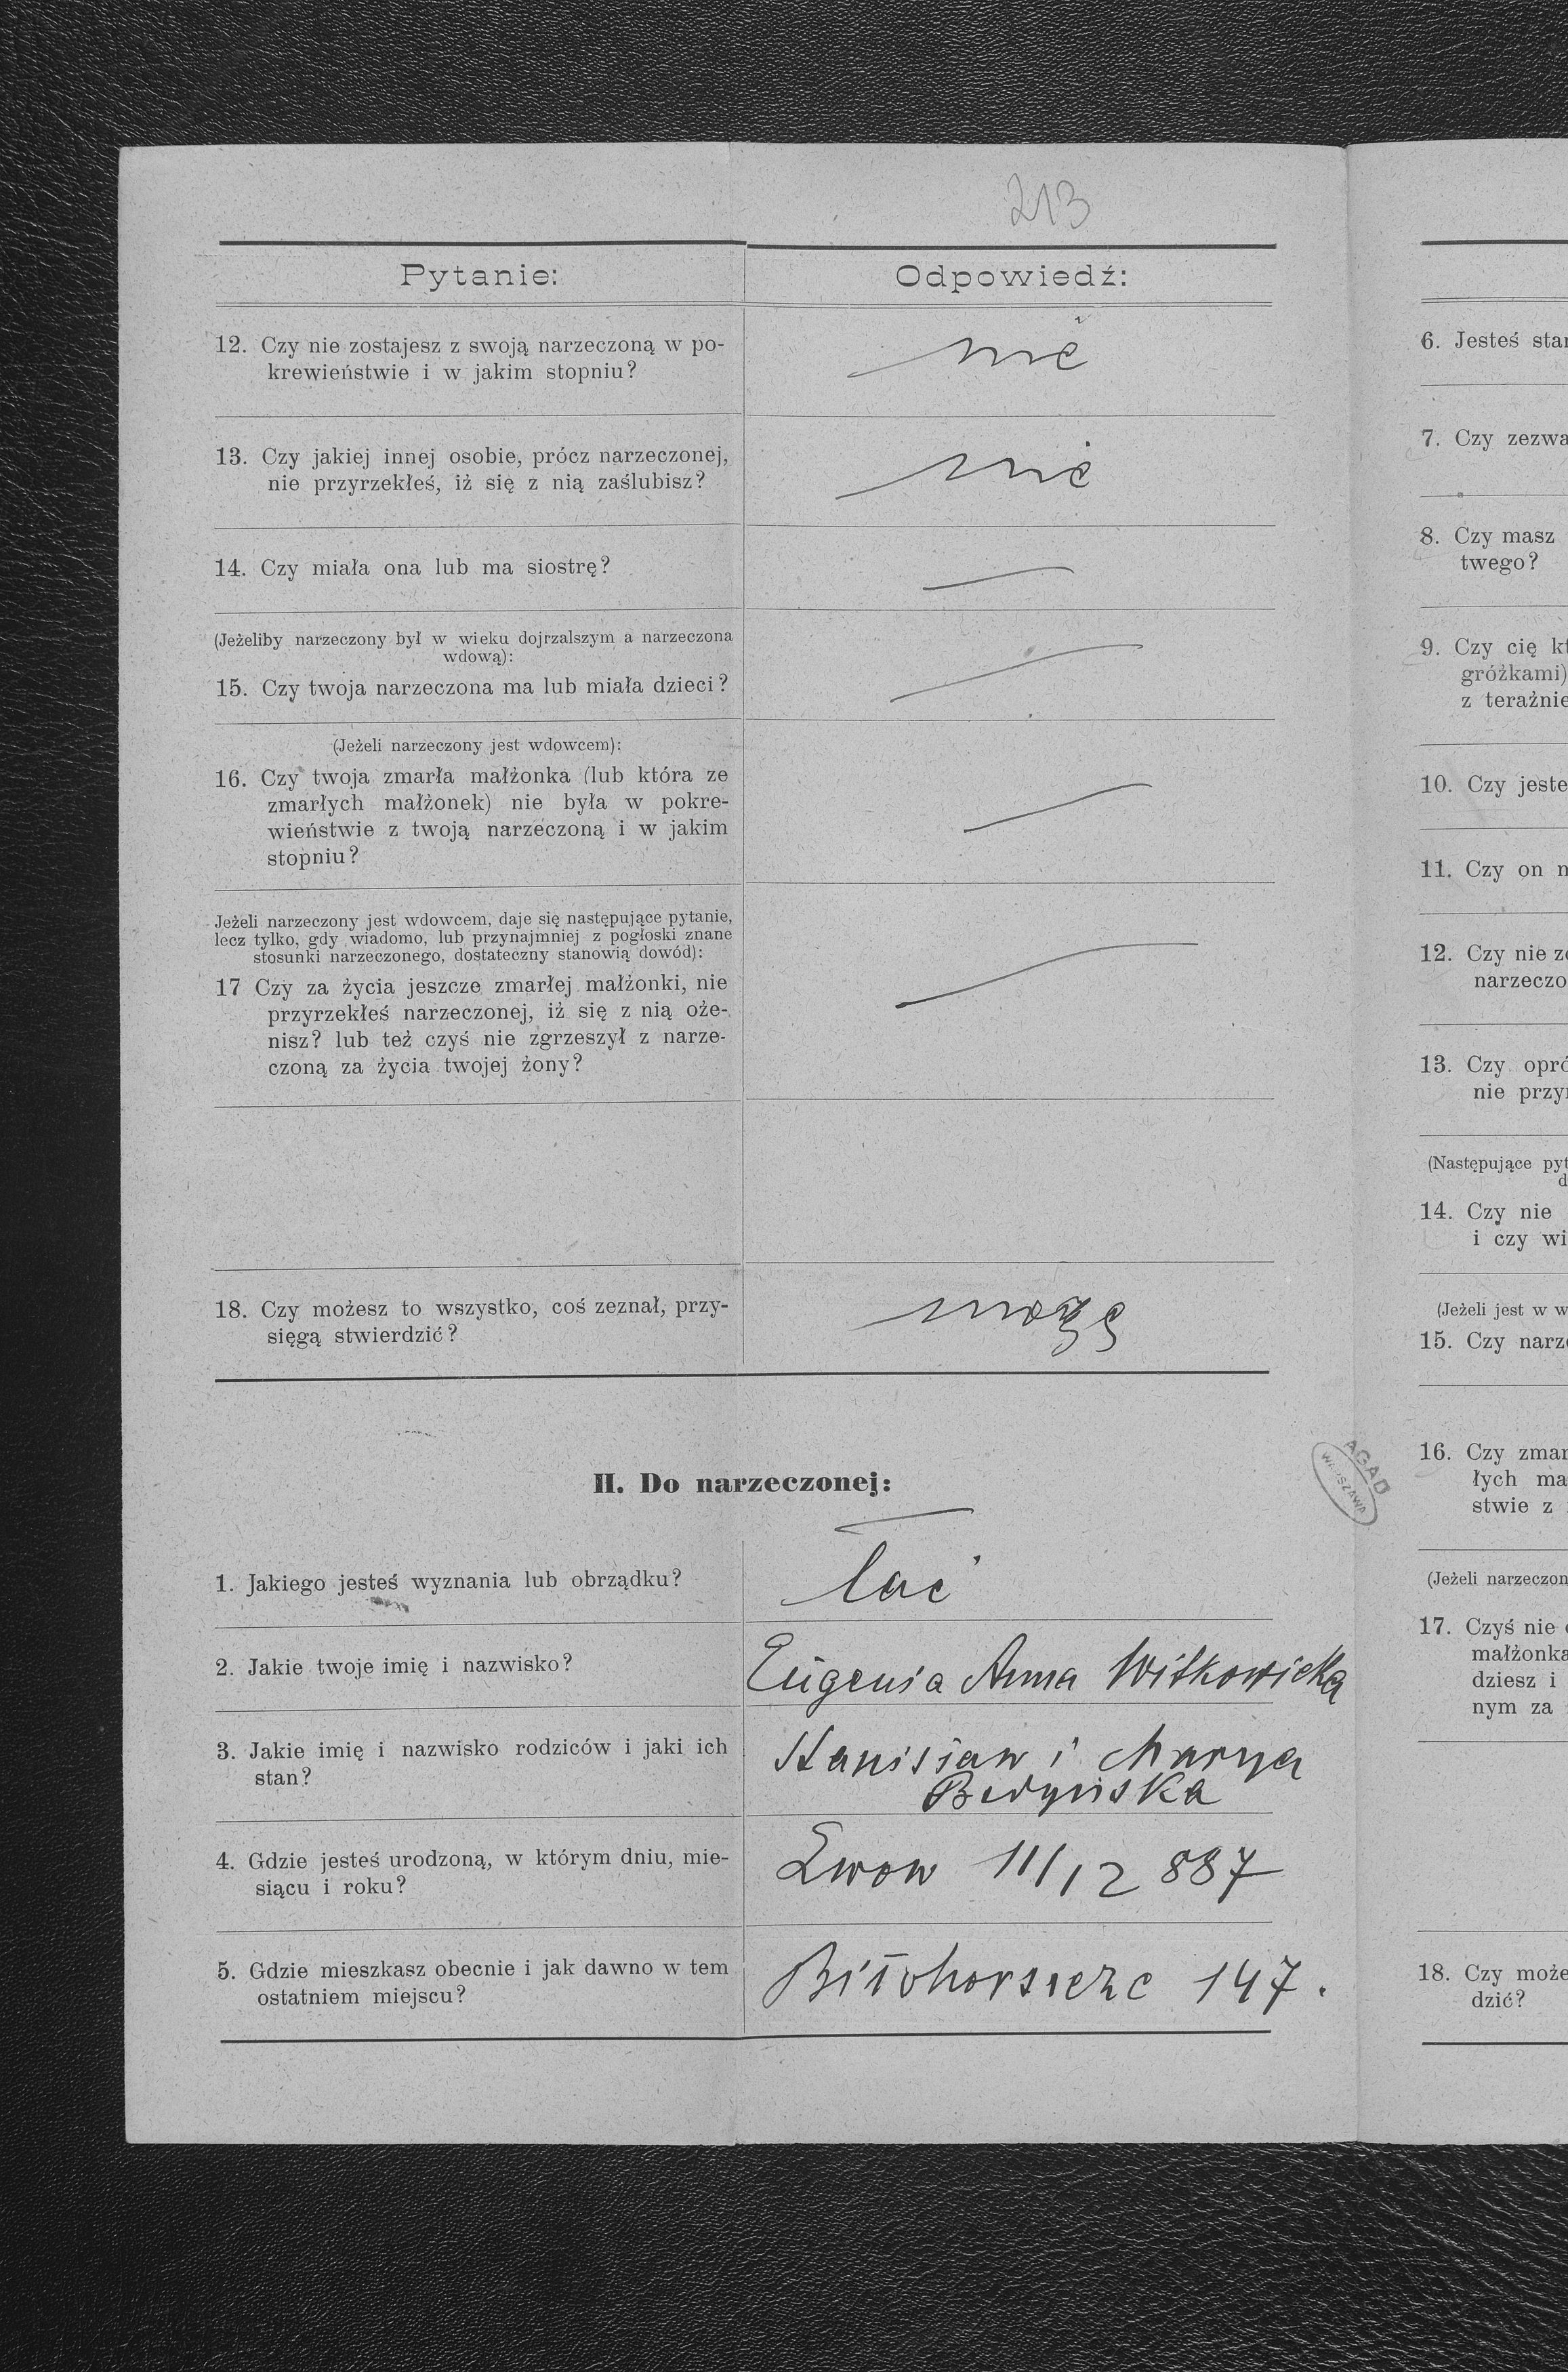 213
Pytanie:
Odpowiedź:
12. Czy nie zostajesz z swoją narzeczoną w po-
krewieństwie i w jakim stopniu?
nie
13. Czy jakiej innej osobie, prócz narzeczonej,
nie przyrzekłeś, iż się z nią zaślubisz?
nie
14. Czy miała ona lub ma siostrę?
(Jeżeliby narzeczony był w wieku dojrzalszym a narzeczona
wdową):
15. Czy twoja narzeczona ma lub miała dzieci?
(Jeżeli narzeczony jest wdowcem):
16. Czy twoja zmarła małżonka (lub która ze
zmarłych małżonek) nie była w pokre-
wieństwie z twoją narzeczoną i w jakim
stopniu?
Jeżeli narzeczony jest wdowcem, daje się następujące pytanie,
lecz tylko, gdy wiadomo, lub przynajmniej z pogłoski znane
stosunki narzeczonego, dostateczny stanowią dowód):
17 Czy za życia jeszcze zmarłej małżonki, nie
przyrzekłeś narzeczonej, iż się z nią oże-
nisz? lub też czyś nie zgrzeszył z narze-
czoną za życia twojej żony?
18. Czy możesz to wszystko, coś zeznał, przy-
sięgą stwierdzić?
mogę
II. Do narzeczonej:
1. Jakiego jesteś wyznania lub obrządku?
łać
2. Jakie twoje imię i nazwisko?
Eugenia Anna Witkowicka
3. Jakie imię i nazwisko rodziców i jaki ich
stan?
Stanisław i Marya
4. Gdzie jesteś urodzoną, w którym dniu, mie-
siącu i roku?
Lwow 11/12 887
5. Gdzie mieszkasz obecnie i jak dawno w tem
ostatniem miejscu?
147.
AGAD
WARSZAWA
6. Jesteś star
7. Czy zezwa
8. Czy masz
twego?
9. Czy cię kt
gróżkami)
z teraźnie
10. Czy jeste
11. Czy on n
12. Czy nie ze
narzeczo
13. Czy opró
nie przyr
(Następujące pyt
d
14. Czy nie
i czy wi
(Jeżeli jest w w
15. Czy narze
16. Czy zmar
łych ma
stwie z
(Jeżeli narzeczon
17. Czyś nie
małżonka
dziesz i
nym za
18. Czy może
dzić?